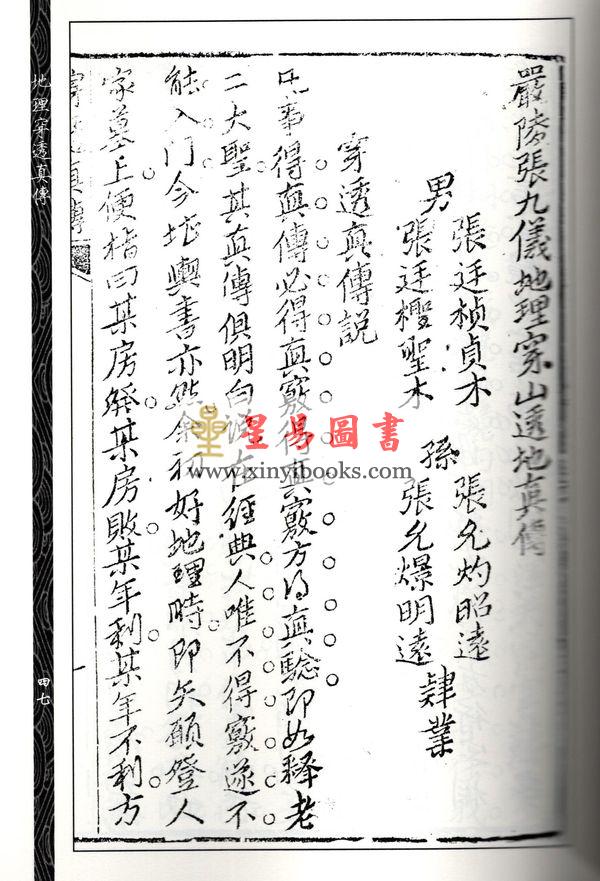 嚴陵張九儀地理穿山透地真傳
張廷楨貞木
孫
張允灼昭遠
男
張廷樫聖木
張允爆明遠
肄業
穿透真傳說
凡事得真傳必得真竅得真竅方得真驗即如釋老
二大聖其真傳俱明白
在經典人唯不得竅遂不
能入門今堪輿書亦然余初好地理時即矢願登人
家墓上便指曰某房發某房敗某年利某年不利方
地理穿透真傳
四七
星易圖書
www.xinyibooks.com